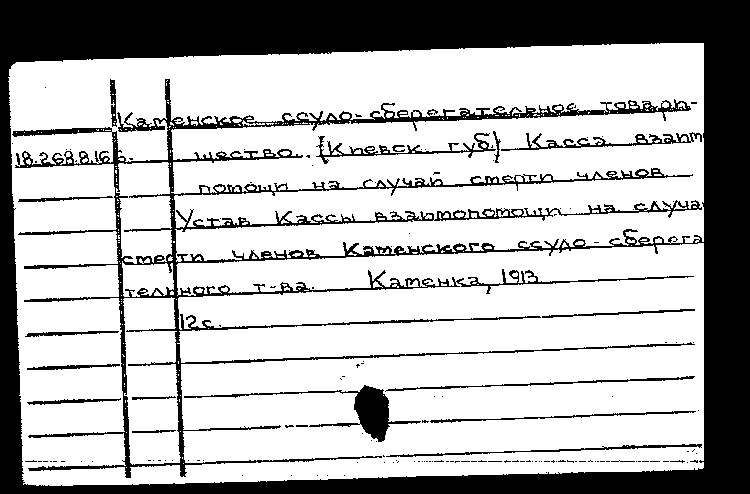 Каменское ссудо-сберегательное товари-
18.268.8.166. щество. {Киевск. губ} Касса взаим
помощи на случай смерти членов
Устав Кассы взаимопомощи на случа
смерти членов Каменского ссудо-сберега
тельного т-ва. Каменка, 1913
12с.